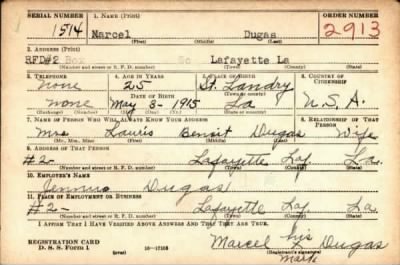 SERIAL NUMBER 1. NAME (Print) ORDER NUMBER
1514 Marcel Dugas 2913
(First) (Middle) (Last)
2. ADDRESS (Print)
RFD#2 Box So Lafayette La
(Number and street or R. F. D. number) (Town) (County) (State)
3. TELEPHONE 4. AGE IN YEARS 5. PLACE OF BIRTH 6. COUNTRY OF CITIZENSHIP
None 25 St. Landry
DATE OF BIRTH
none May 3- 1915 La U.S.A.
(Exchange) (Number) (Mo.) (Day) (Yr.) (State or country)
7. NAME OF PERSON WHO WILL ALWAYS KNOW YOUR ADDRESS 8. RELATIONSHIP OF THAT PERSON
Mrs Lauris Benoit Dugas Wife
(Mr., Mrs., Miss) (First) (Middle) (Last)
9. ADDRESS OF THAT PERSON
#2- Lafayette Laf. La.
(Number and street or R. F. D. number) (Town) (County) (State)
10. EMPLOYER'S NAME
Dugas
11. PLACE OF EMPLOYMENT OR BUSINESS
#2- Lafayette Laf. La.
(Number and street or R. F. D. number) (Town) (County) (State)
I AFFIRM THAT I HAVE VERIFIED ABOVE ANSWERS AND THAT THEY ARE TRUE.
REGISTRATION CARD
D. S. S. Form 1 (over) 16-17105 Marcel his Dugas
(Registrant's signature)
mark